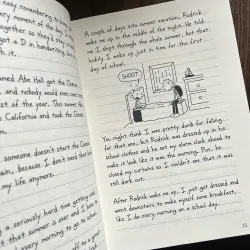 easy remembering to
every moment of
of something so they'd stay
got a D in handwriting
it.
named Abe Hall got the Cheese
and nobody would even come
rest of the year. This summer he
California and took the Cheese
someone doesn't start the Cheese
again, because I don't need that
my life anymore.
a seriously hard time getting used
that summer is over and I have
every morning to go to school.
off to a
A couple of days into summer vacation, Rodrick
woke me up in the middle of the night. He told
me I slept through the whole summer, but that
luckily I woke up just in time for the first
day of school.
SHOOT!
You might think I was pretty dumb for falling
for that one, but Rodrick was dressed up in his
school clothes and he set my alarm clock ahead to
make it look like it was the morning. Plus, he
closed my curtains so I couldn't see that it was
still dark out.
After Rodrick woke me up, I just got dressed and
went downstairs to make myself some breakfast,
like I do every morning on a school day.